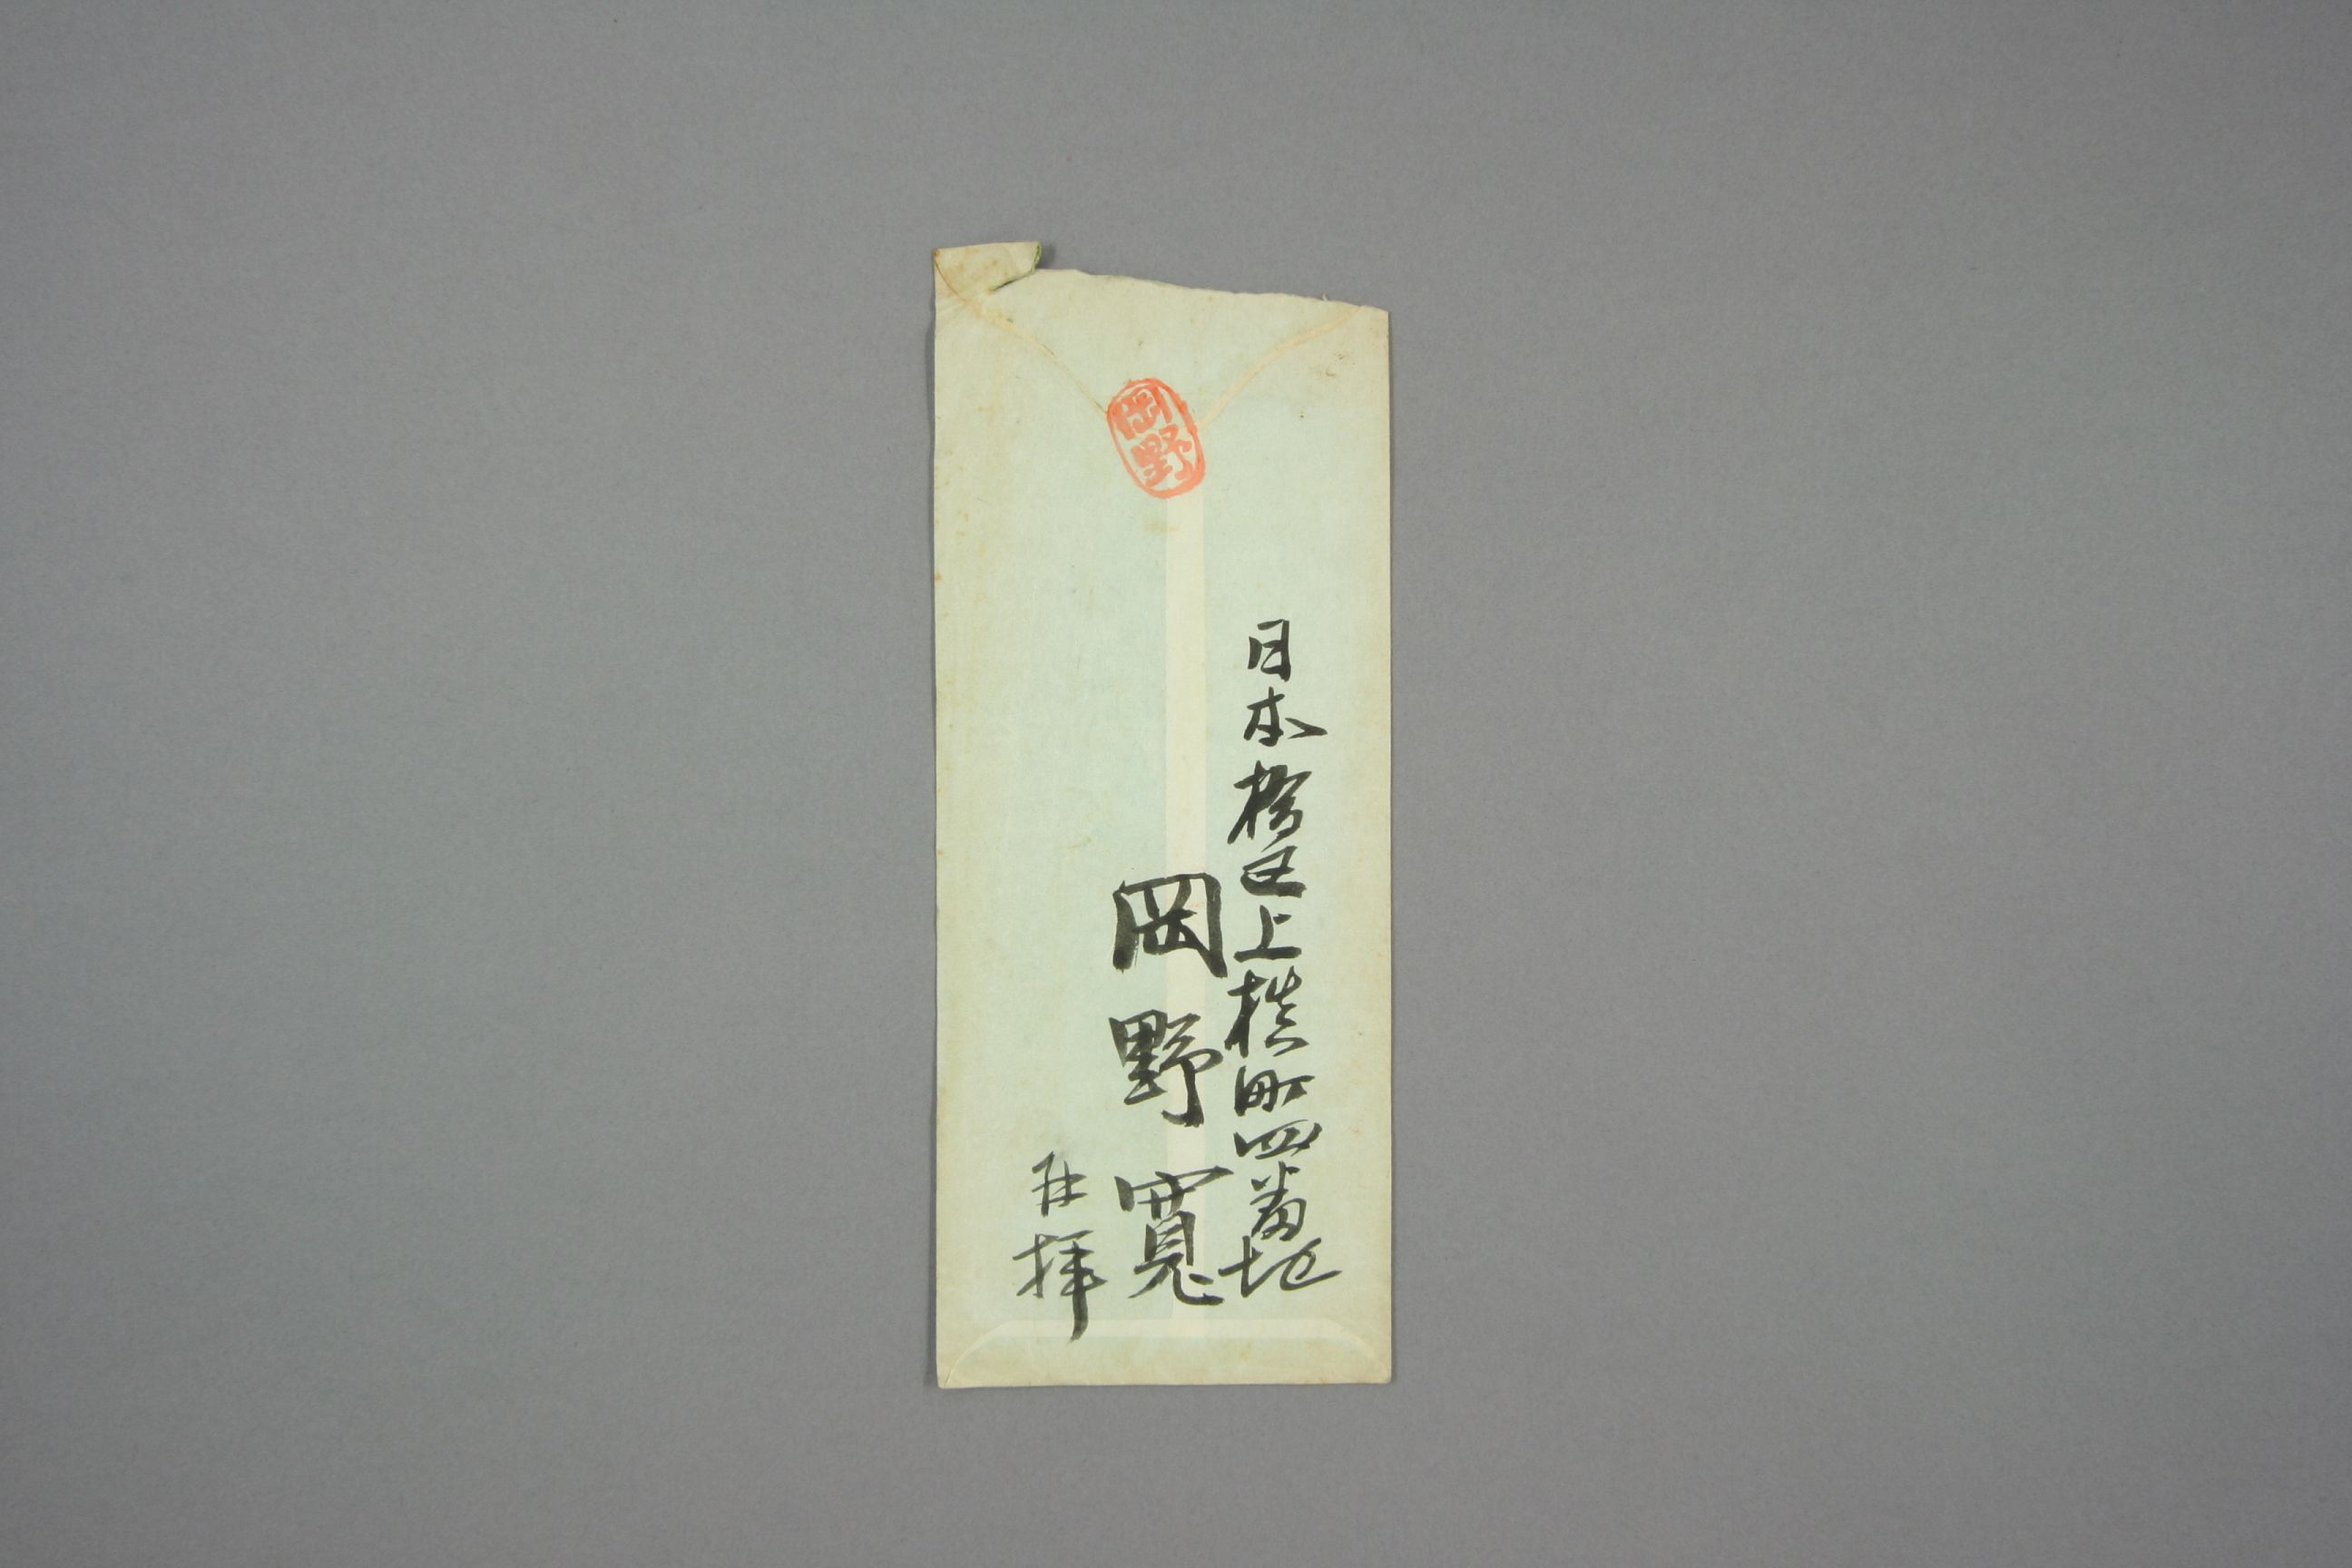 日本橋区上槙町四番地
岡野寛
再拝
岡野